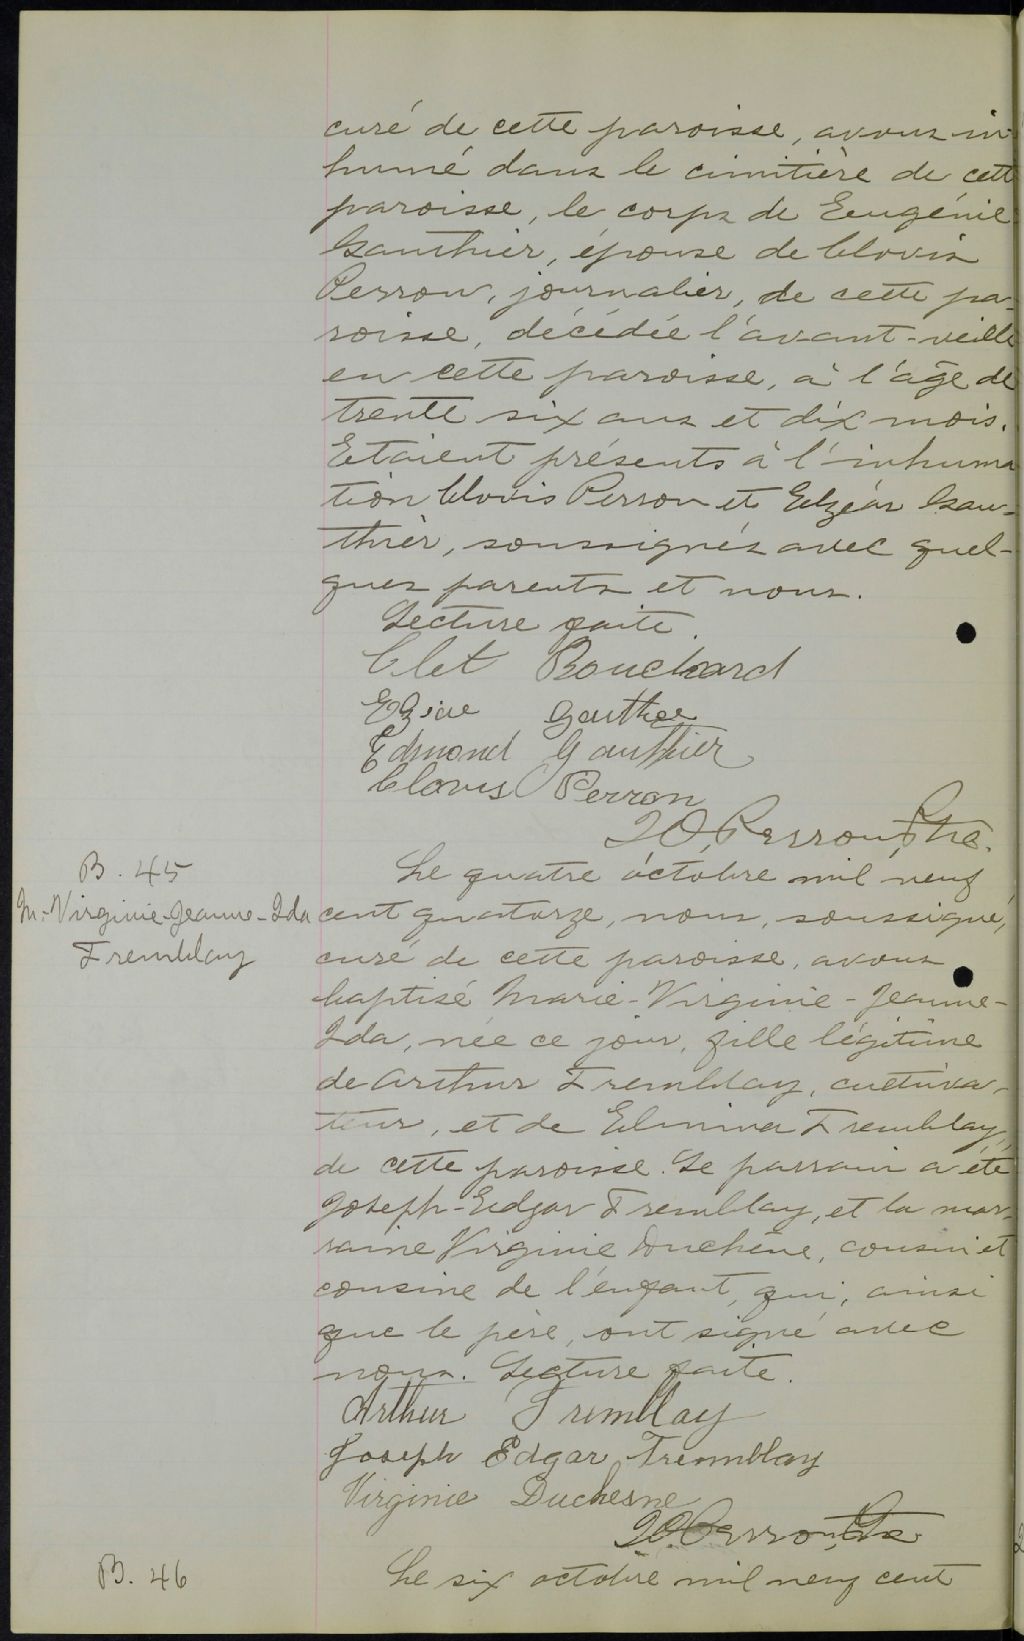 curé de cette paroisse, avons in-
humé dans le cimitière de cett
paroisse, le corps de Eugénie
Gauthier, épouse de Clovis
Perron, journalier, de cette pa-
roisse, décédée l'avant-veille
en cette paroisse, à l'âge de
trente six ans et dix mois.
Etaient présents à l'inhuma
tion Clovis Perron et Elzéar Gau-
thier, soussignés avec quel-
ques parents et nous.
Lecture faite.
Clet Bouchard
Elzear Gauthier
Edmond Gauthier
Clovis Perron
J O Perron, Ptre.
B. 45
M.-Virginie-Jeanne-Ida
Tremblay
Le quatre octobre mil neuf
cent quatorze, nous, soussigné,
curé de cette paroisse, avons
baptisé Marie-Virginie-Jeanne-
Ida, née ce jour, fille légitime
de Arthur Tremblay, cultiva-
teur, et de Elmina Tremblay,
de cette paroisse. Le parrain a été
Joseph-Edgar Tremblay, et la mar-
raine Virginie Duchêne, cousin et
cousine de l'enfant, qui, ainsi
que le père, ont signé avec
nous. Lecture faite.
Arthur Tremblay
Joseph Edgar Tremmblay
Virginie Duchesne
J O Perron, Ptre
B. 46
Le six octobre mil neuf cent